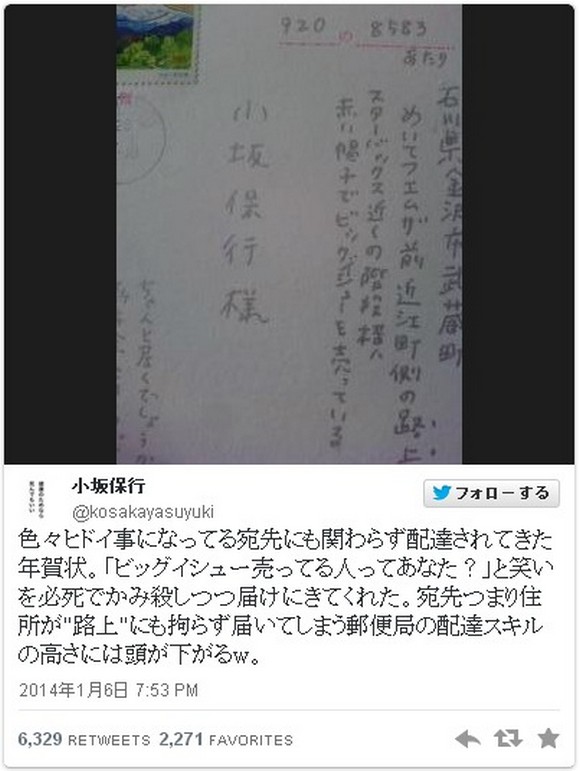 920 の 8583
あたり
石川県金沢市武蔵町
めいてつエムザ前 近江町側の路上
スターバックス近くの階段横へ
赤い帽子でビッグイシューを売っている
小坂保行様
小坂保行
@kosakayasuyuki
フォローする
色々ヒドイ事になってる宛先にも関わらず配達されてきた
年賀状。「ビッグイシュー売ってる人ってあなた？」と笑い
を必死でかみ殺しつつ届けにきてくれた。宛先つまり住
所が"路上"にも拘らず届いてしまう郵便局の配達スキル
の高さには頭が下がるw。
2014年1月6日 7:53 PM
6,329 RETWEETS 2,271 FAVORITES